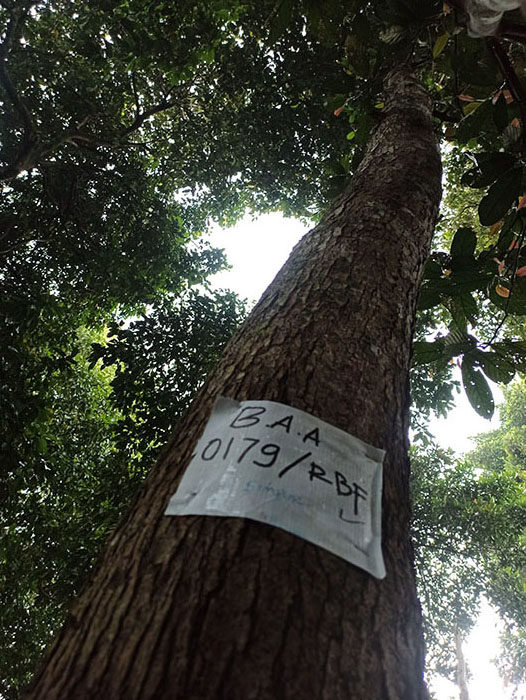 B.A.A
0179/RBF